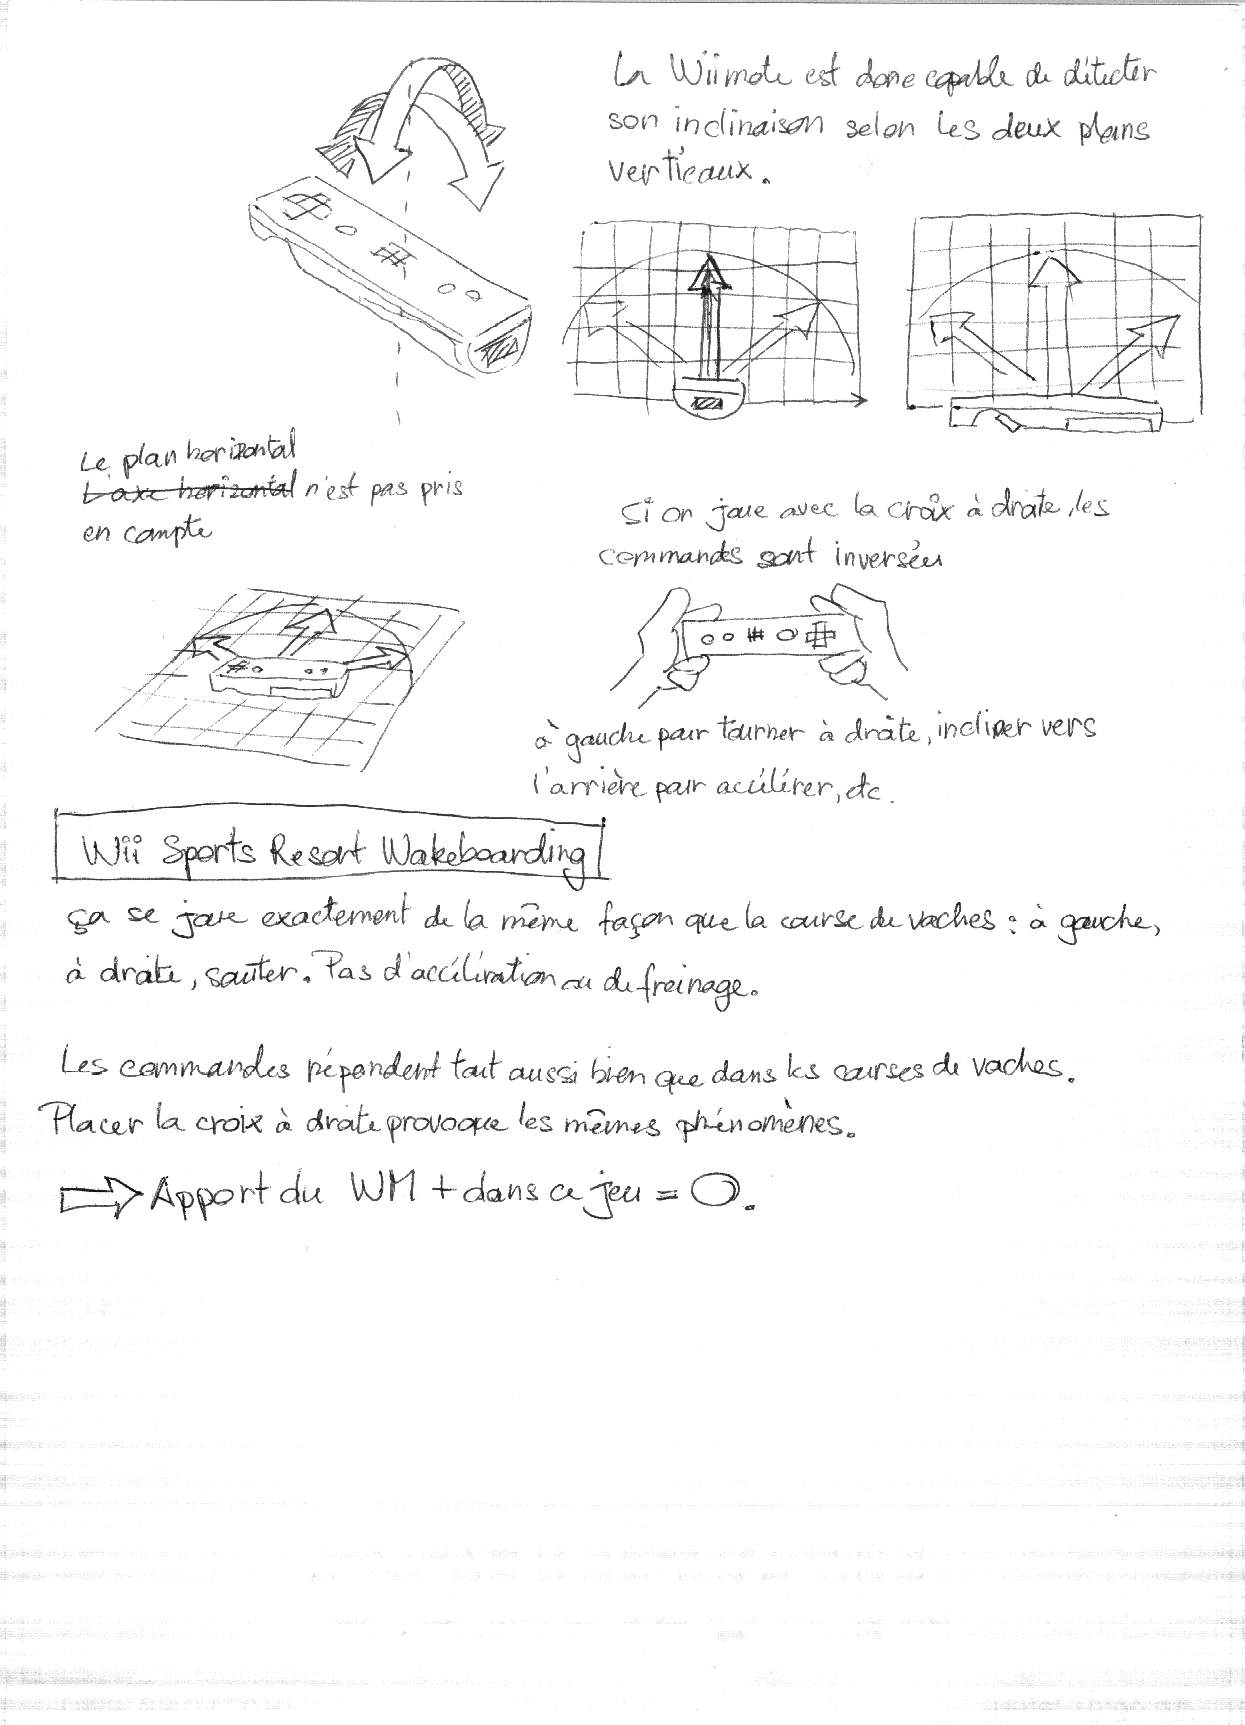 La Wiimote est donc capable de détecter
son inclinaison selon les deux plans
verticaux.
Le plan horizontal
L'axe horizontal n'est pas pris
en compte
Si on joue avec la croix à droite, les
commandes sont inversées
à gauche pour tourner à droite, incliner vers
l'arrière pour accélérer, etc.
Wii Sports Resort Wakeboarding
ça se joue exactement de la même façon que la course de vaches : à gauche,
à droite, sauter. Pas d'accélération ou de freinage.
Les commandes répondent tout aussi bien que dans les courses de vaches.
Placer la croix à droite provoque les mêmes phénomènes.
Apport du WM + dans ce jeu = 0.